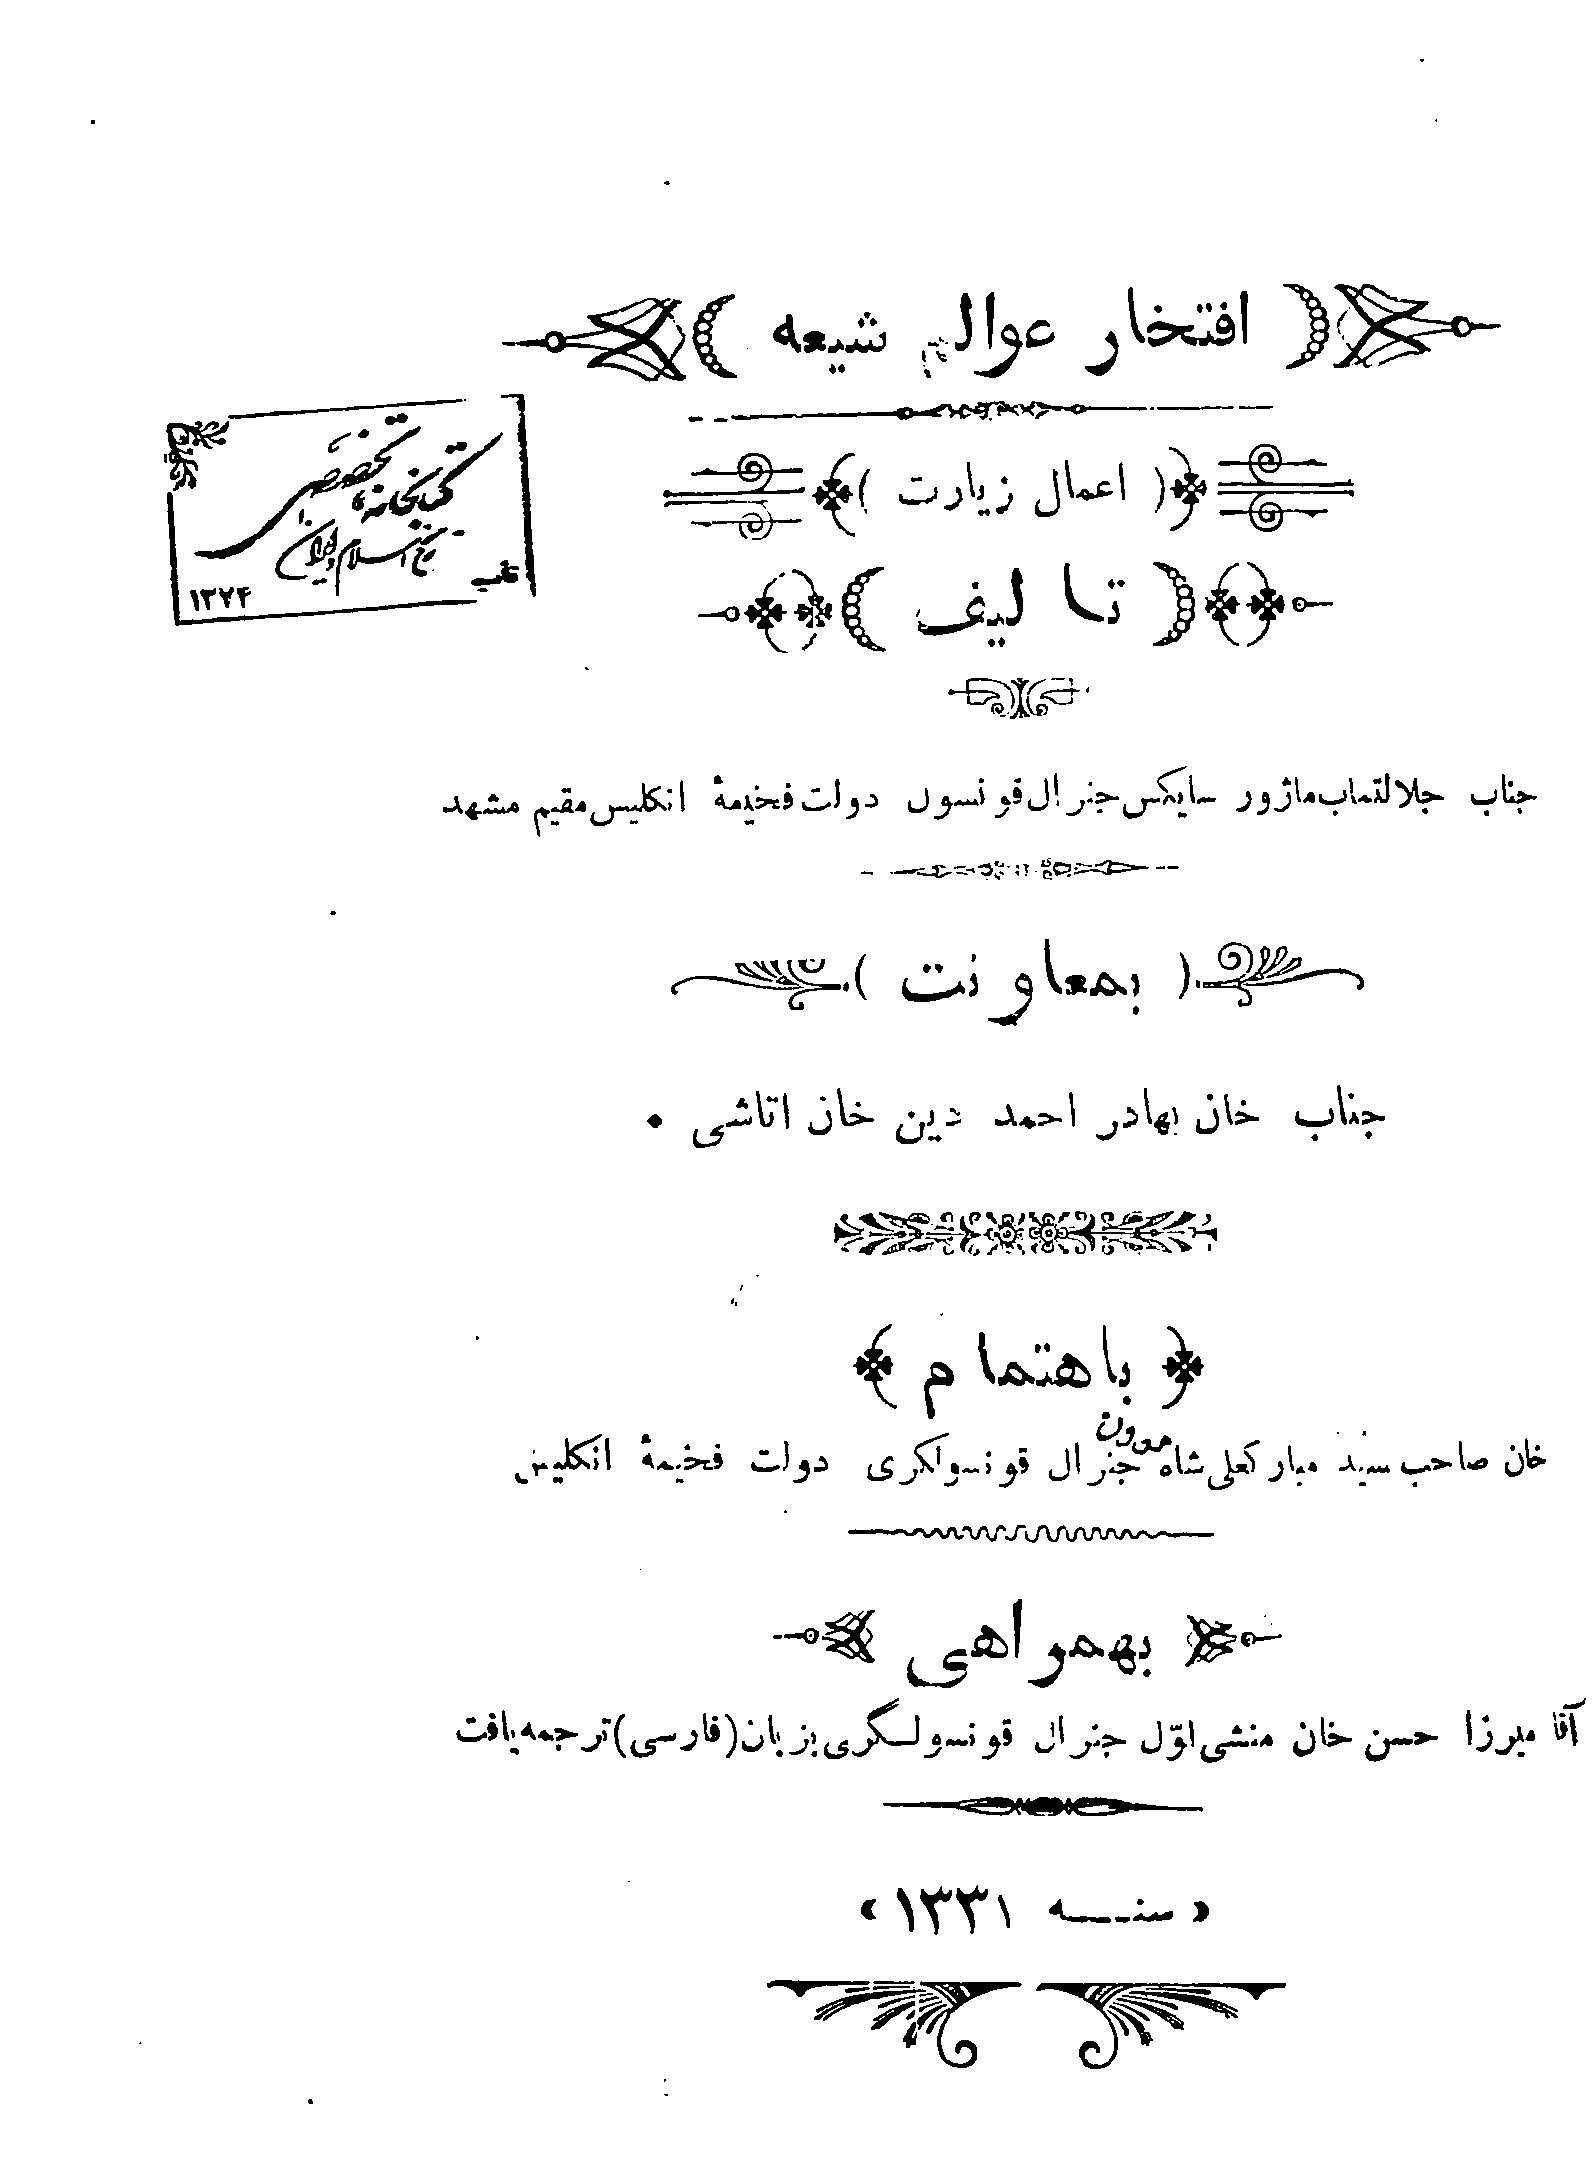 ( افتخار عوالم شیعه )
( اعمال زیارت )
( تا لیف )
جناب جلالتماب ماژور سایکس جنرال قونسول دولت فخیمهٔ انکلیس مقیم مشهد
( بمعاونت )
جناب خان بهادر احمد دین خان اتاشی •
باهتمام
خان صاحب سید مبارکعلی شاه معاون جنرال قونسولکری دولت فخیمهٔ انکلیس
بهمراهی
آقا میرزا حسن خان منشی اوّل جنرال قونسولـگری بزبان (فارسی) ترجمه یافت
« سنـــه ۱۳۳۱ »
کتابخانه تخصصی
تاریخ اسلام و ایران
قم
۱۳۷۴